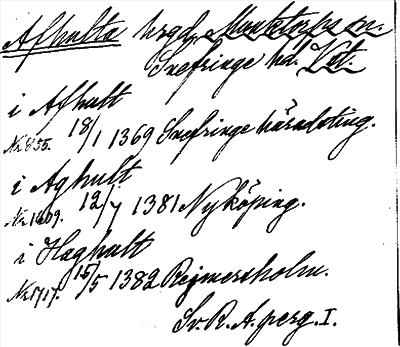 Afhulta hrgd, Munktorps sn.
Snefringe hd. Vst.
i Afhult
Nr 855. 18/1 1369 Snefringe häradsting.
i Aghult
Nr 1609. 12/7 1381 Nyköping.
i Haghult
Nr 1717. 15/5 1382 Rejmersholm.
Sv. R. A. perg. I.